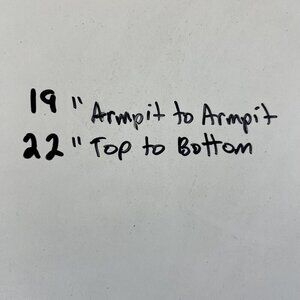 19 " Armpit to Armpit
22 " Top to Bottom